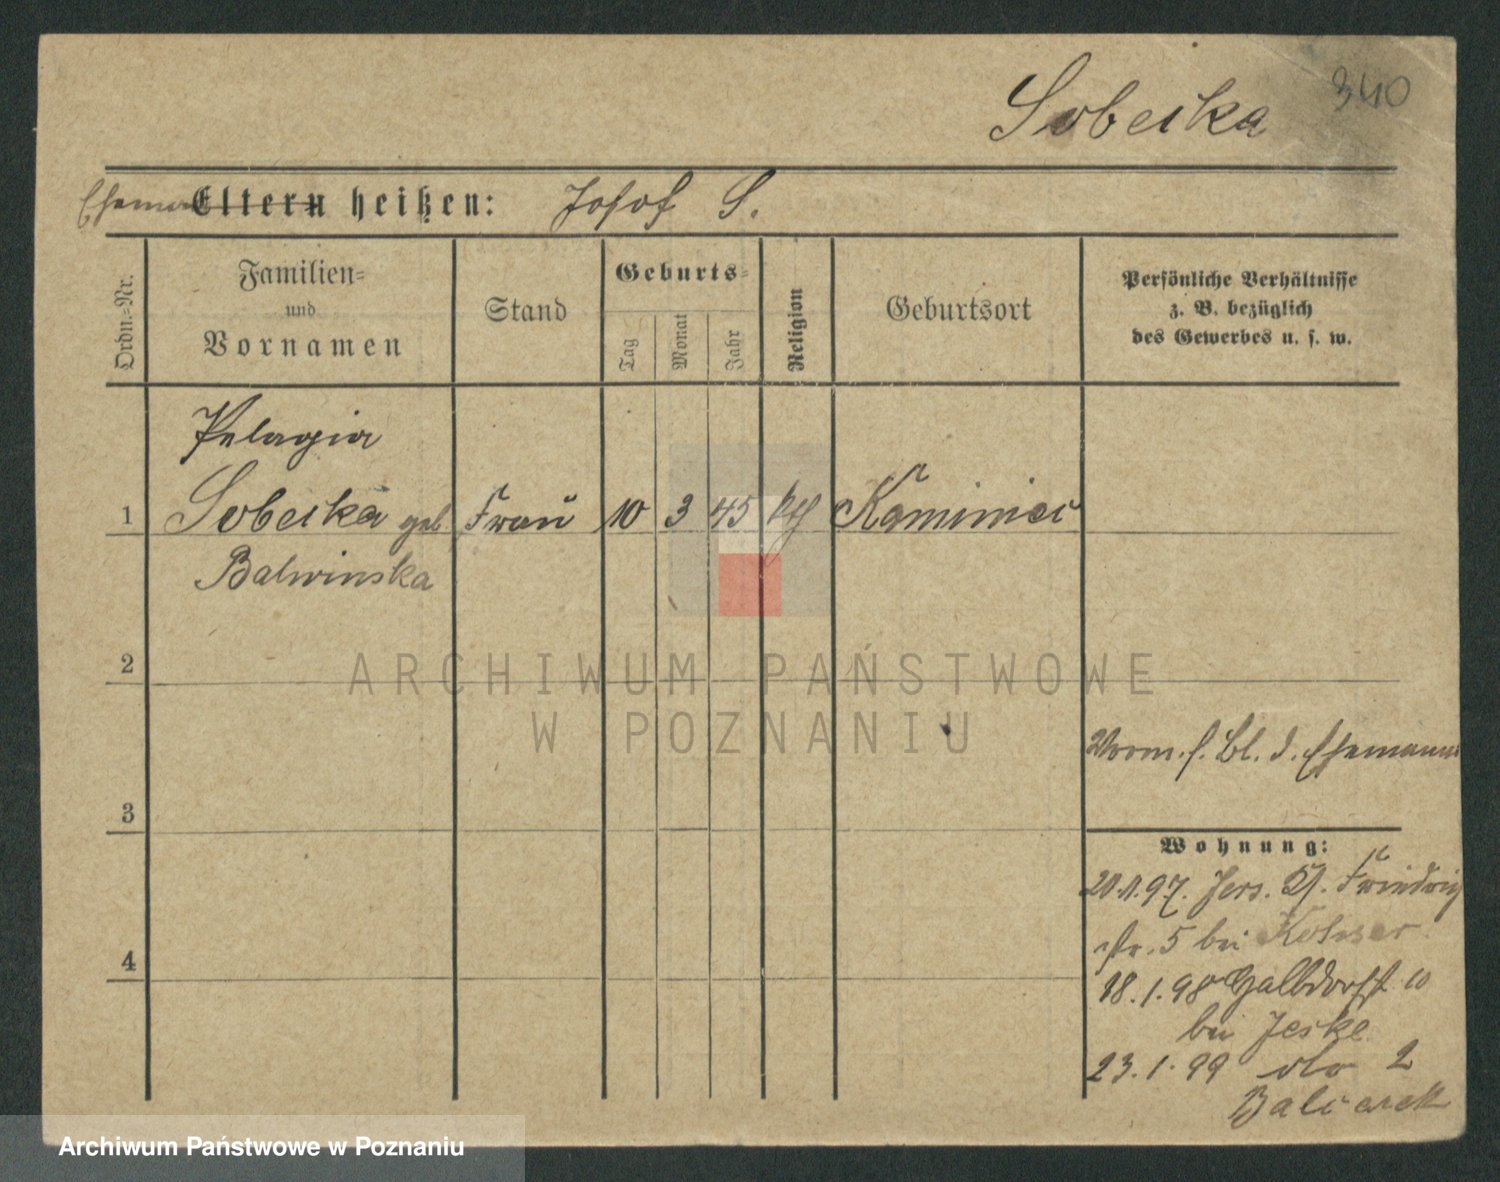 340
Sobecka
Ehemann Eltern heißen: Josef S.
Ordn.-Nr.
Familien-
und
Vornamen
Stand
Geburts-
Tag
Monat
Jahr
Religion
Geburtsort
Persönliche Verhältnisse
z. B. bezüglich
des Gewerbes u. s. w.
Pelagia
1 Sobecka geb Frau 10 3 45 Kaminiec
Balwinska
2
3
4
Vorm. s. Bl. d. Ehemanns
Wohnung:
20.1.97. Jers. Friedrich
str. 5 bei
18.1.98 Halbdorfst. 10
bei Jeske
23.1.99 dto 2
ARCHIWUM PAŃSTWOWE
W POZNANIU
Archiwum Państwowe w Poznaniu